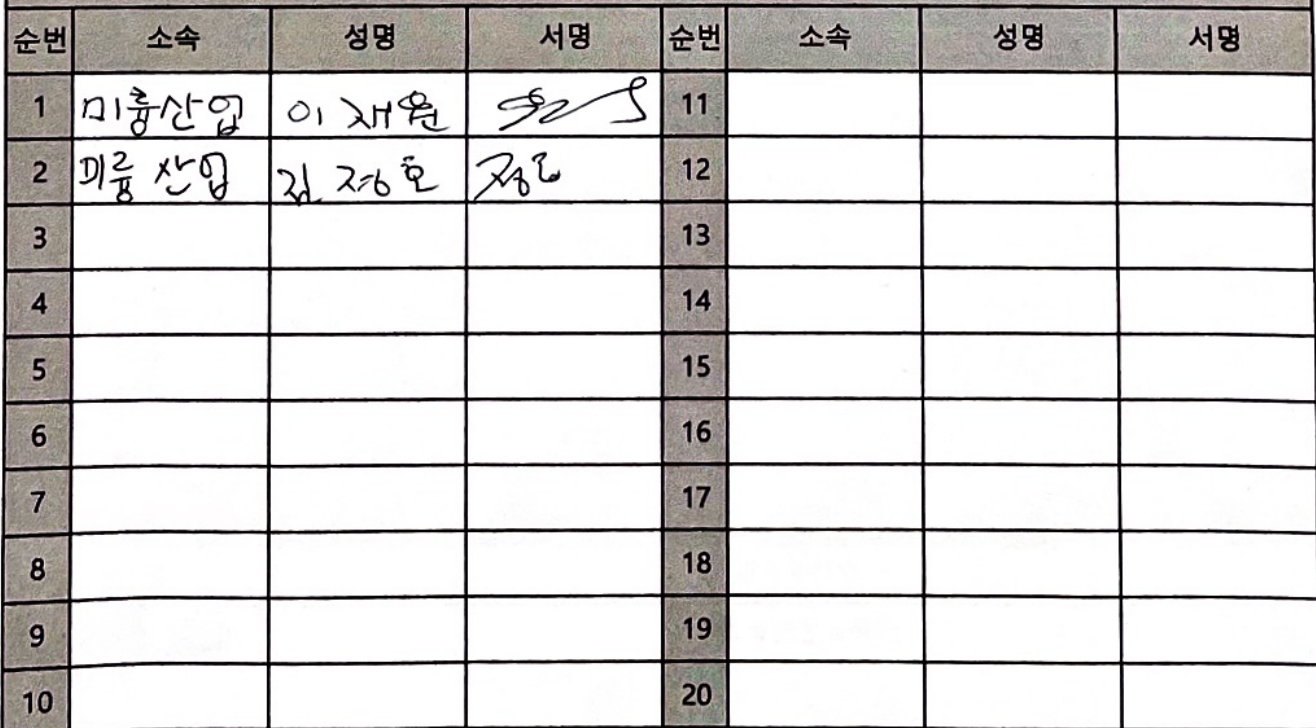 순번 소속 성명 서명 순번 소속 성명 서명
1 미륭산업 이재원 11
2 미륭산업 김정호 12
3 13
4 14
5 15
6 16
7 17
8 18
9 19
10 20